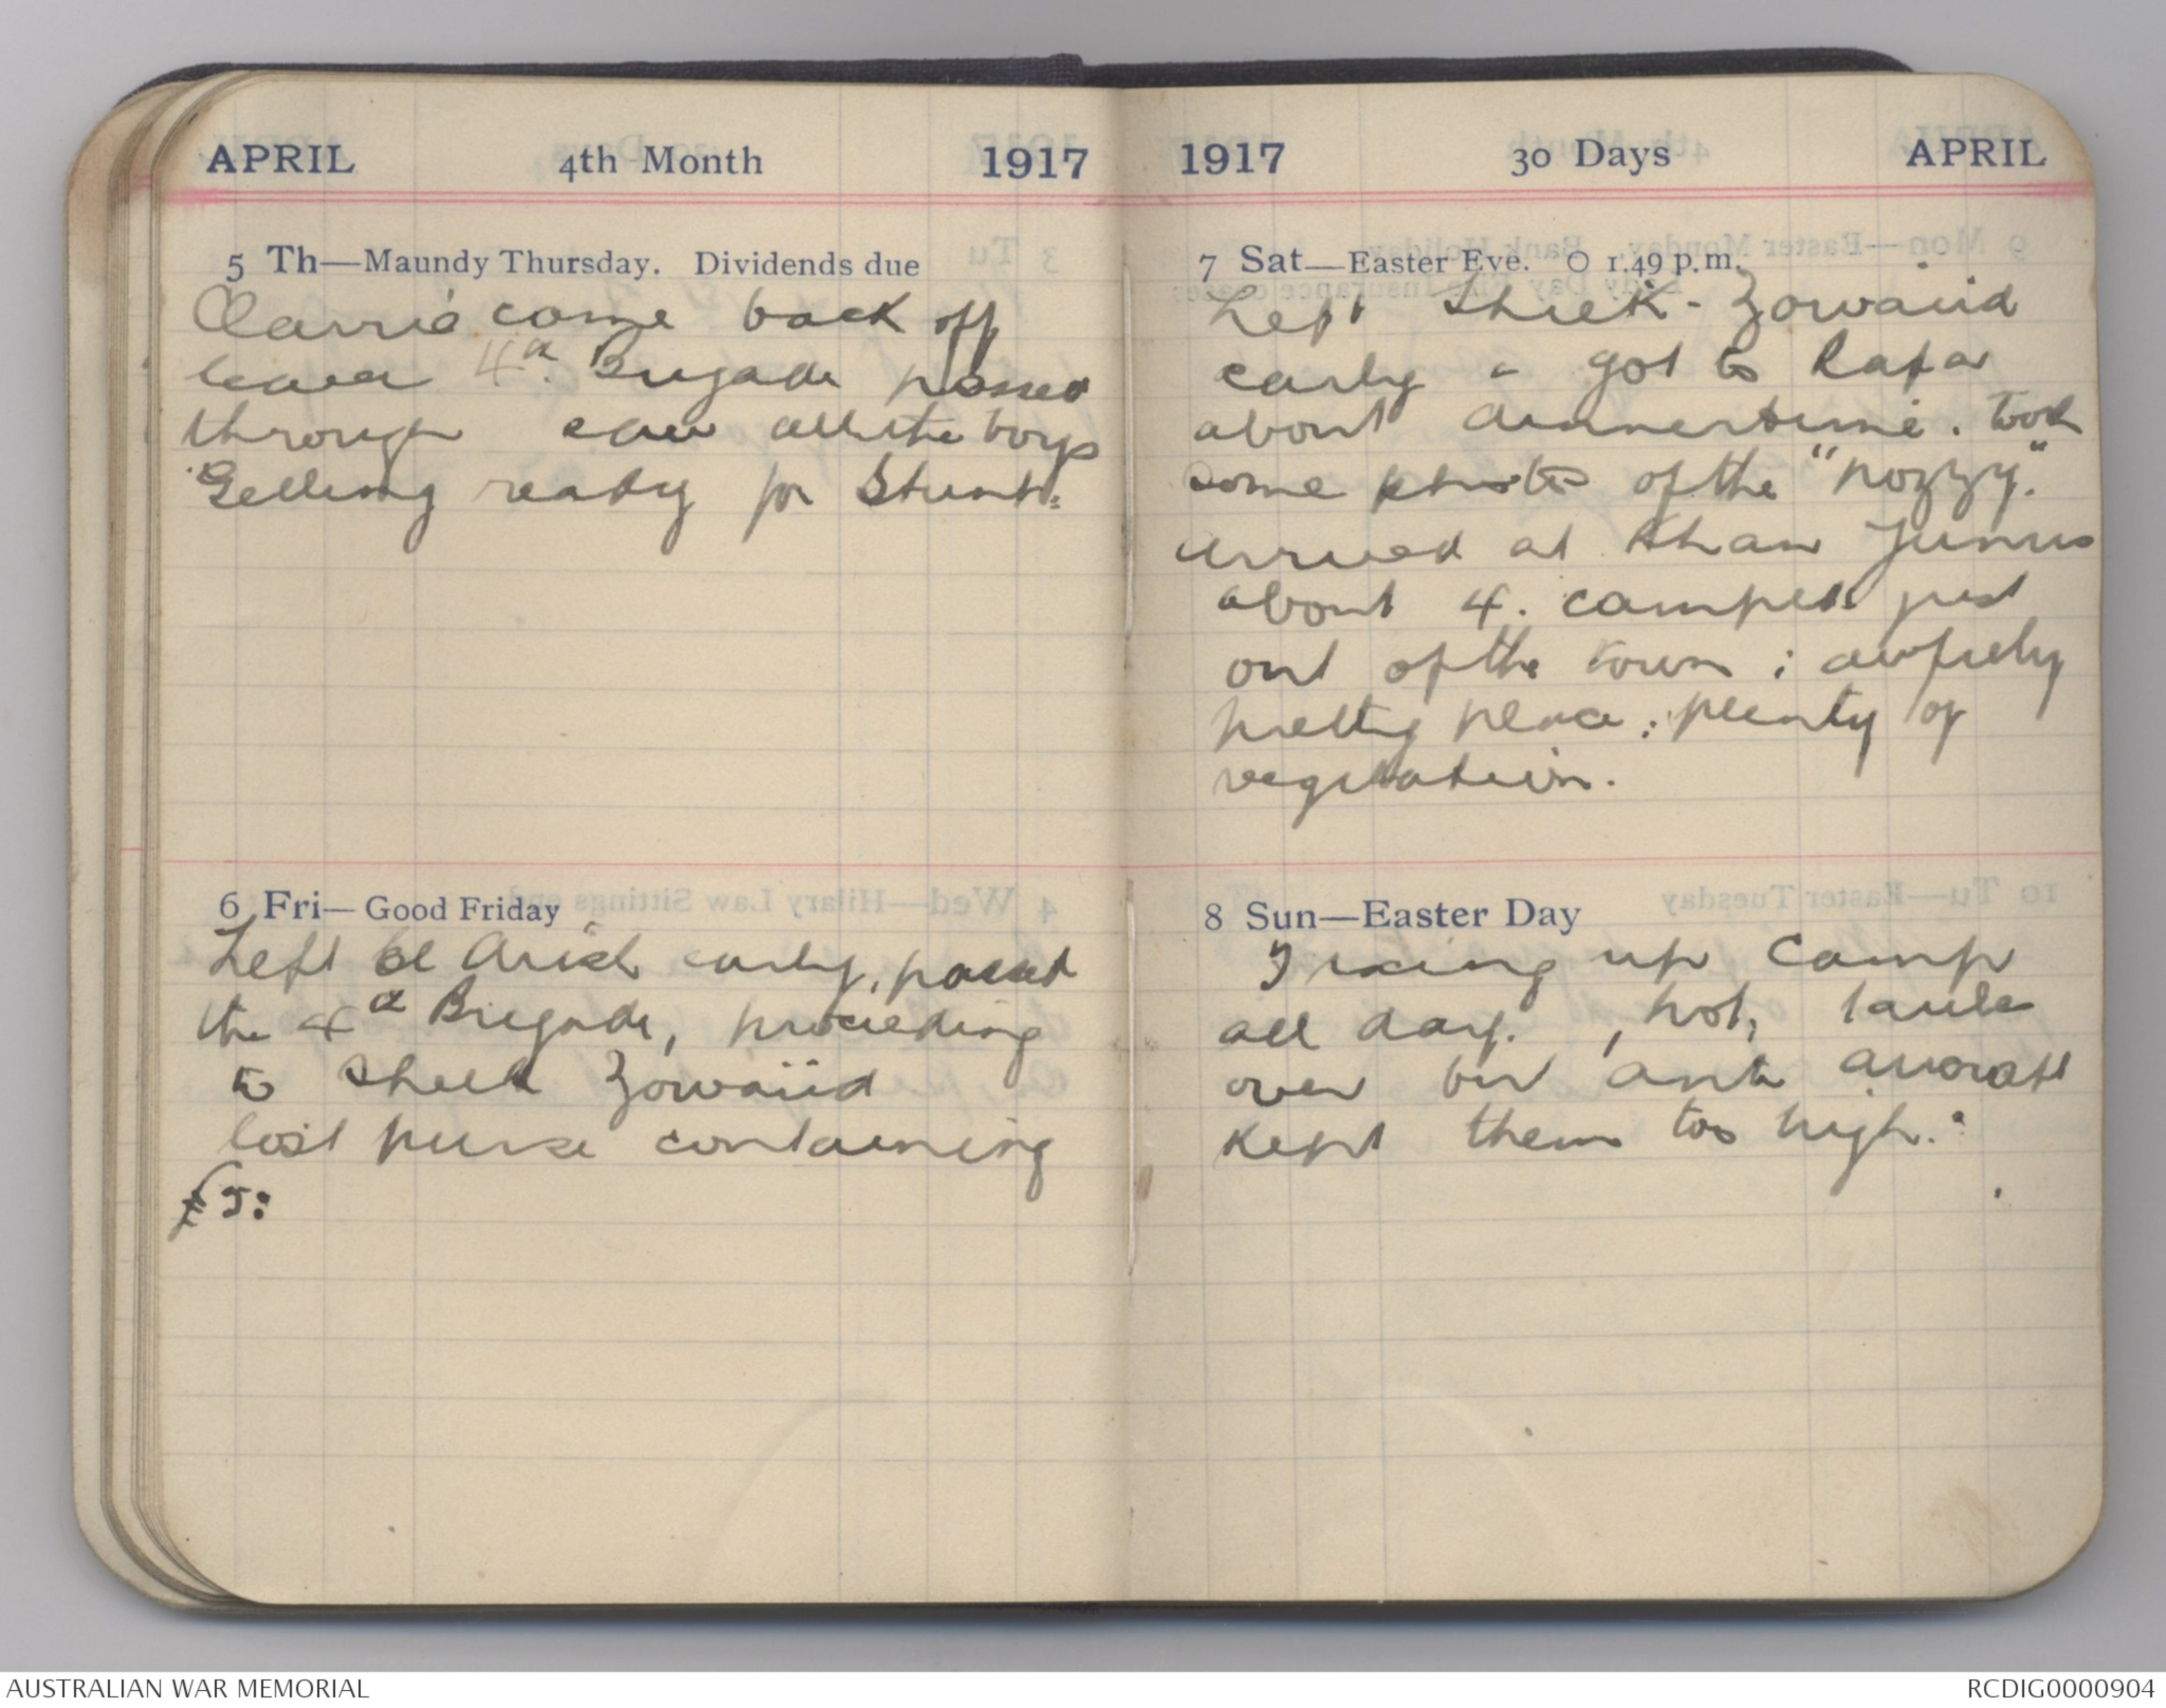 APRIL 4th Month 1917
5 Th—Maundy Thursday. Dividends due
Clarrie come back off
leave 4th Brigade passed
through saw all the boys
Getting ready for Stunt.
6 Fri—Good Friday
Left El Arish early, passed
the 4th Brigade, proceeding
to Sheik Zowaiid
lost purse containing
£5:
1917 30 Days APRIL
7 Sat—Easter Eve. O 1.49 p.m.
Left Shiek-Zowaiid
early - got to Rafa
about dinnertime. took
some photos of the "pozzy".
arrived at Khan Junus
about 4. camped just
out of the town; awfully
pretty place; plenty of
vegetation.
8 Sun—Easter Day
Fixing up Camp
all day. , hot,
over but anti aircraft
kept them too high.
AUSTRALIAN WAR MEMORIAL
RCDIG0000904